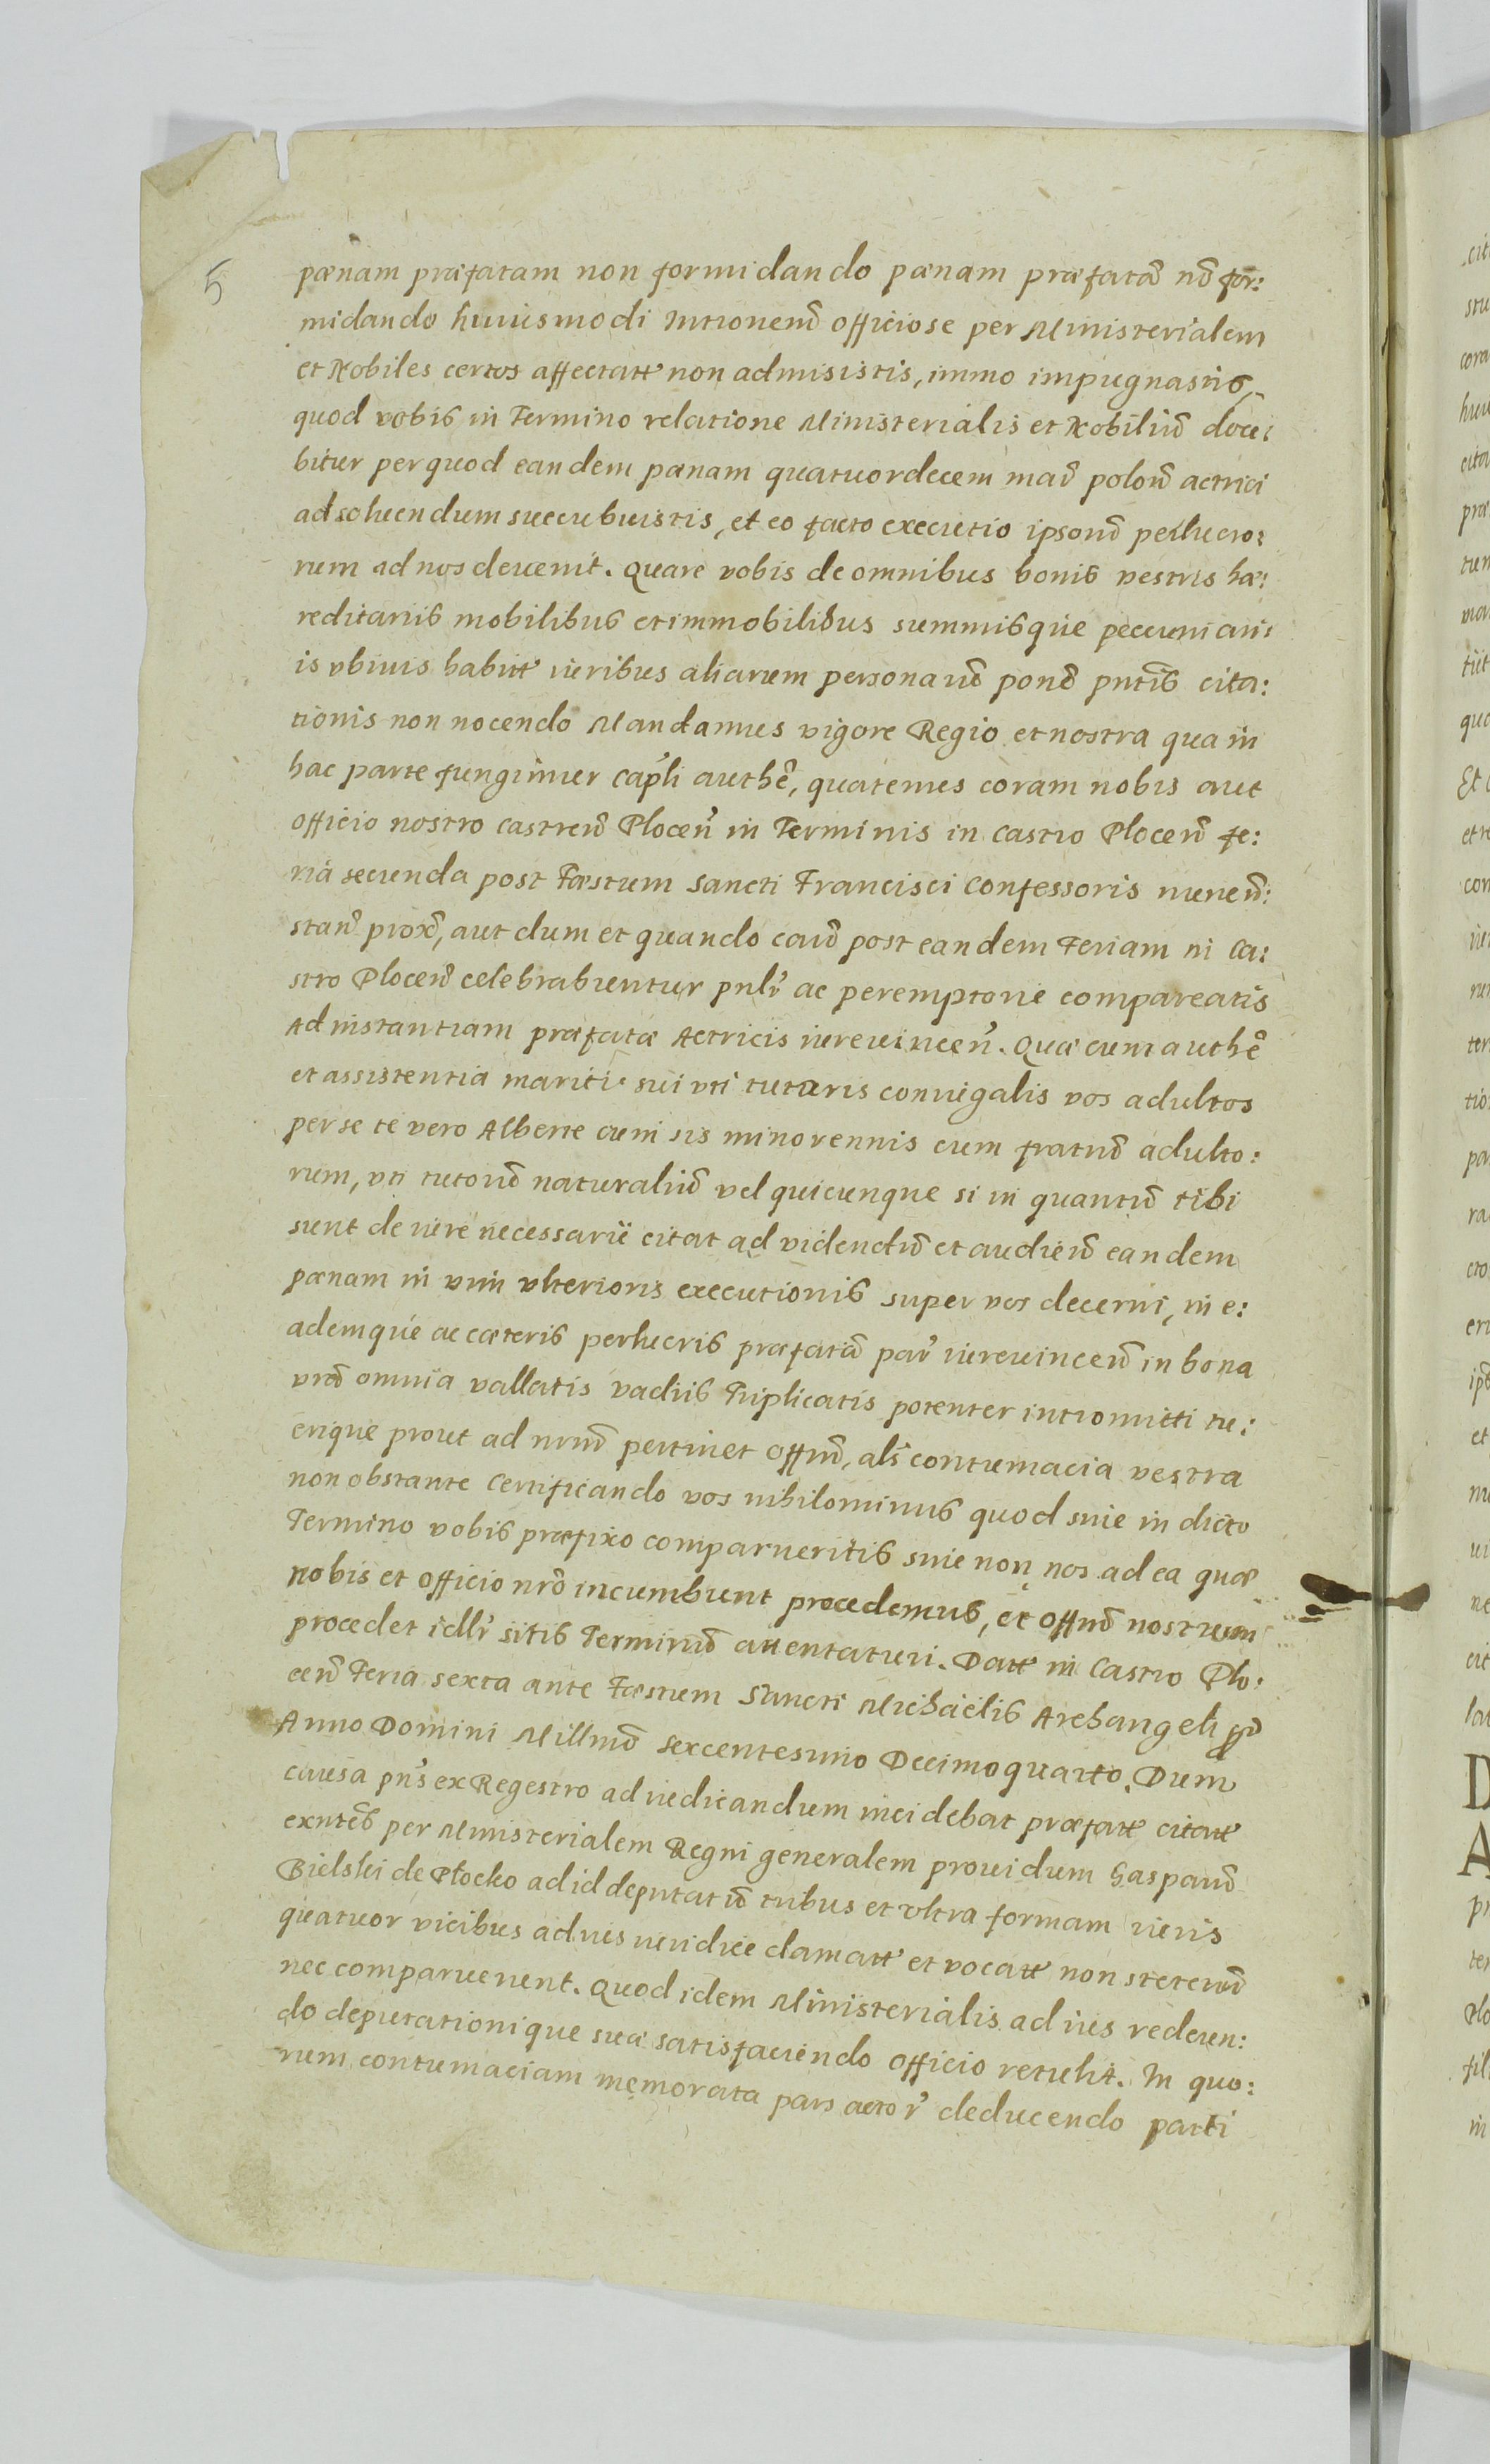 5
pænam præfatam non formidando pænam præfatā nō for:
midando huiusmodi Intionem̃ officiose per Ministerialem
et Nobiles certos affectatt non admisistis, immo impugnastis,
quod vobis in Termino relatione Ministerialis et Nobiliū doce:
bitur per quod eandem pænam quatuordecem mar̃ polon̄ actrici
ad soluendum succubuistis, et eo facto executio ipsorū perlucro:
rum ad nos deuenit. Quare vobis de omnibus bonis vestris hæ:
reditariis mobilibus et immobilibus summisque pecuniari:
is vbiuis habitt iuribus aliarum personarū ponō pntis̃ cita:
tionis non nocendo Mandamus vigore Regio et nostra qua in
hac parte fungimur Capli authẽ, quatenus coram nobis aut
officio nostro castren̄ Plocen̄ in Terminis in castro Plocen̄ fe:
ria secunda post Fæstum Sancti Francisci Confessoris nunc in:
stan̄ prox̄, aut dum et quando eaī post eandem Feriam in Ca:
stro Plocen̄ celebrabuntur pnlr̃ ac peremptorie compareatis
Ad instantiam præfatæ Actricis iureuincen̄. Quæ cum authẽ
et assistentia mariti sui vti tutoris coniugalis vos adultos
per se te vero Alberte cum sis minorennis cum fratrū adulto:
rum, vti tutorū naturaliū vel quicunque si in quantū tibi
sunt de iure necessarii citat ad videndū et audien̄ eandem
pænam in vim vlterioris executionis super vos decerni, in e:
ademque ac cæteris perlucris præfatā par̃ iureuincen̄ in bona
vrā omnia vallatis vadiis Triplicatis potenter intromitti tu:
erique prout ad nrm̄ pertinet Offm̄, als̃ contumacia vestra
non obstante Certificando vos nihilominus quod siue in dicto
Termino vobis præfixo comparueritis siue non nos ad ea quæ
nobis et officio nrō incumbunt procedemus, et Offm̄ nostrum
procedet idlr̃ sitis Terminū attentaturi. Datt in Castro Plo:
cen̄ Feria sexta ante Fæstum Sancti Michaelis Archangeli
Anno Domini Millmō Sexcentesimo Decimoquarto. Dum
causa pns̃ ex Regestro ad iudicandum incidebat præfatt citatt
exntes̃ per Ministerialem Regni generalem prouidum Gasparū
Bielski de Płocko ad id deputatū tribus et vltra formam iuris
quatuor vicibus ad ius iuridice clamatt et vocatt non steterūt
nec comparuerunt. Quod idem Ministerialis ad ius redeun:
do deputationique suæ satisfaciendo officio retulit. In quo:
rum contumaciam memorata pars actor̃ deducendo parti